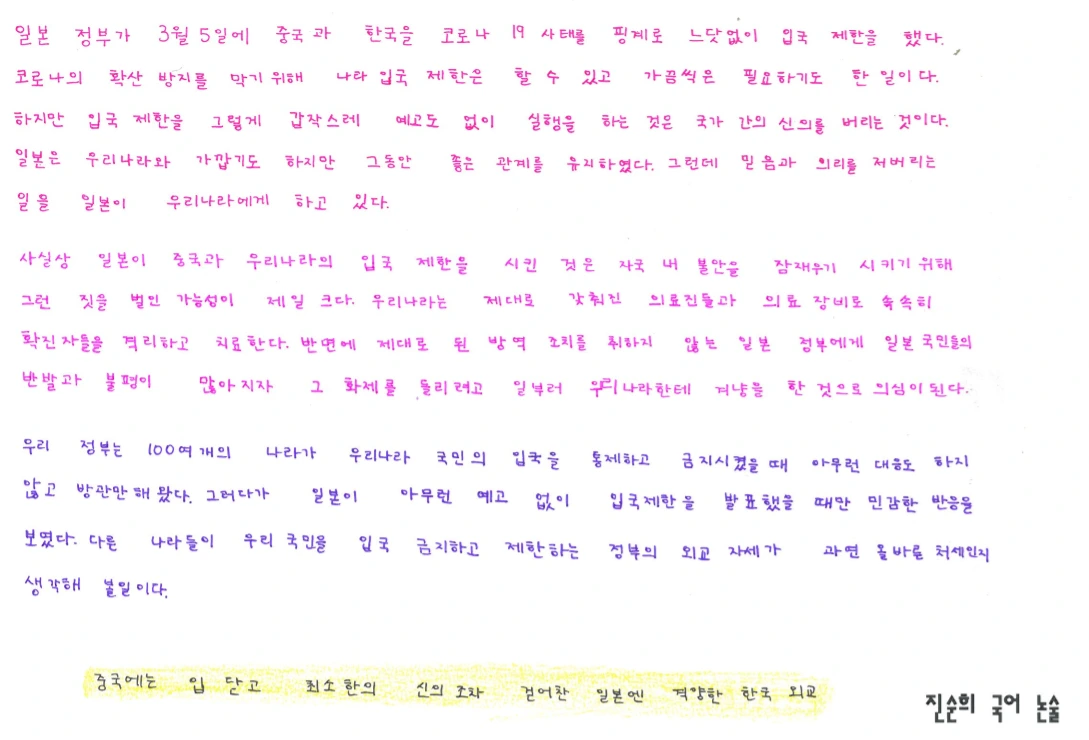 일본 정부가 3월 5일에 중국과 한국을 코로나 19 사태를 핑계로 느닷없이 입국 제한을 했다.
코로나의 확산 방지를 막기위해 나라 입국 제한은 할 수 있고 가끔씩은 필요하기도 한 일이다.
하지만 입국 제한을 그렇게 갑작스레 예고도 없이 실행을 하는 것은 국가 간의 신의를 버리는 것이다.
일본은 우리나라와 가깝기도 하지만 그동안 좋은 관계를 유지하였다. 그런데 믿음과 의리를 저버리는
일을 일본이 우리나라에게 하고 있다.
사실상 일본이 중국과 우리나라의 입국 제한을 시킨 것은 자국 내 불안을 잠재우기 시키기 위해
그런 짓을 벌인 가능성이 제일 크다. 우리나라는 제대로 갖춰진 의료진들과 의료 장비로 속속히
확진자들을 격리하고 치료한다. 반면에 제대로 된 방역 조치를 취하지 않는 일본 정부에게 일본 국민들의
반발과 불평이 많아지자 그 화제를 돌리려고 일부러 우리나라한테 겨냥을 한 것으로 의심이 된다.
우리 정부는 100여개의 나라가 우리나라 국민의 입국을 통제하고 금지시켰을 때 아무런 대응도 하지
않고 방관만 해 왔다. 그러다가 일본이 아무런 예고 없이 입국제한을 발표했을 때만 민감한 반응을
보였다. 다른 나라들이 우리 국민을 입국 금지하고 제한하는 정부의 외교 자세가 과연 올바른 처세인지
생각해 볼일이다.
중국에는 입 닫고 최소한의 신의조차 걷어찬 일본엔 격앙한 한국 외교
진순희 국어 논술